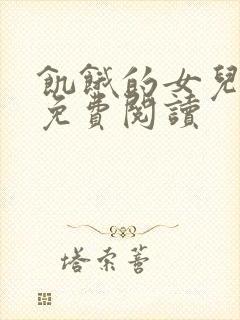 飢餓的女兒
免費閱讀
塔索薈